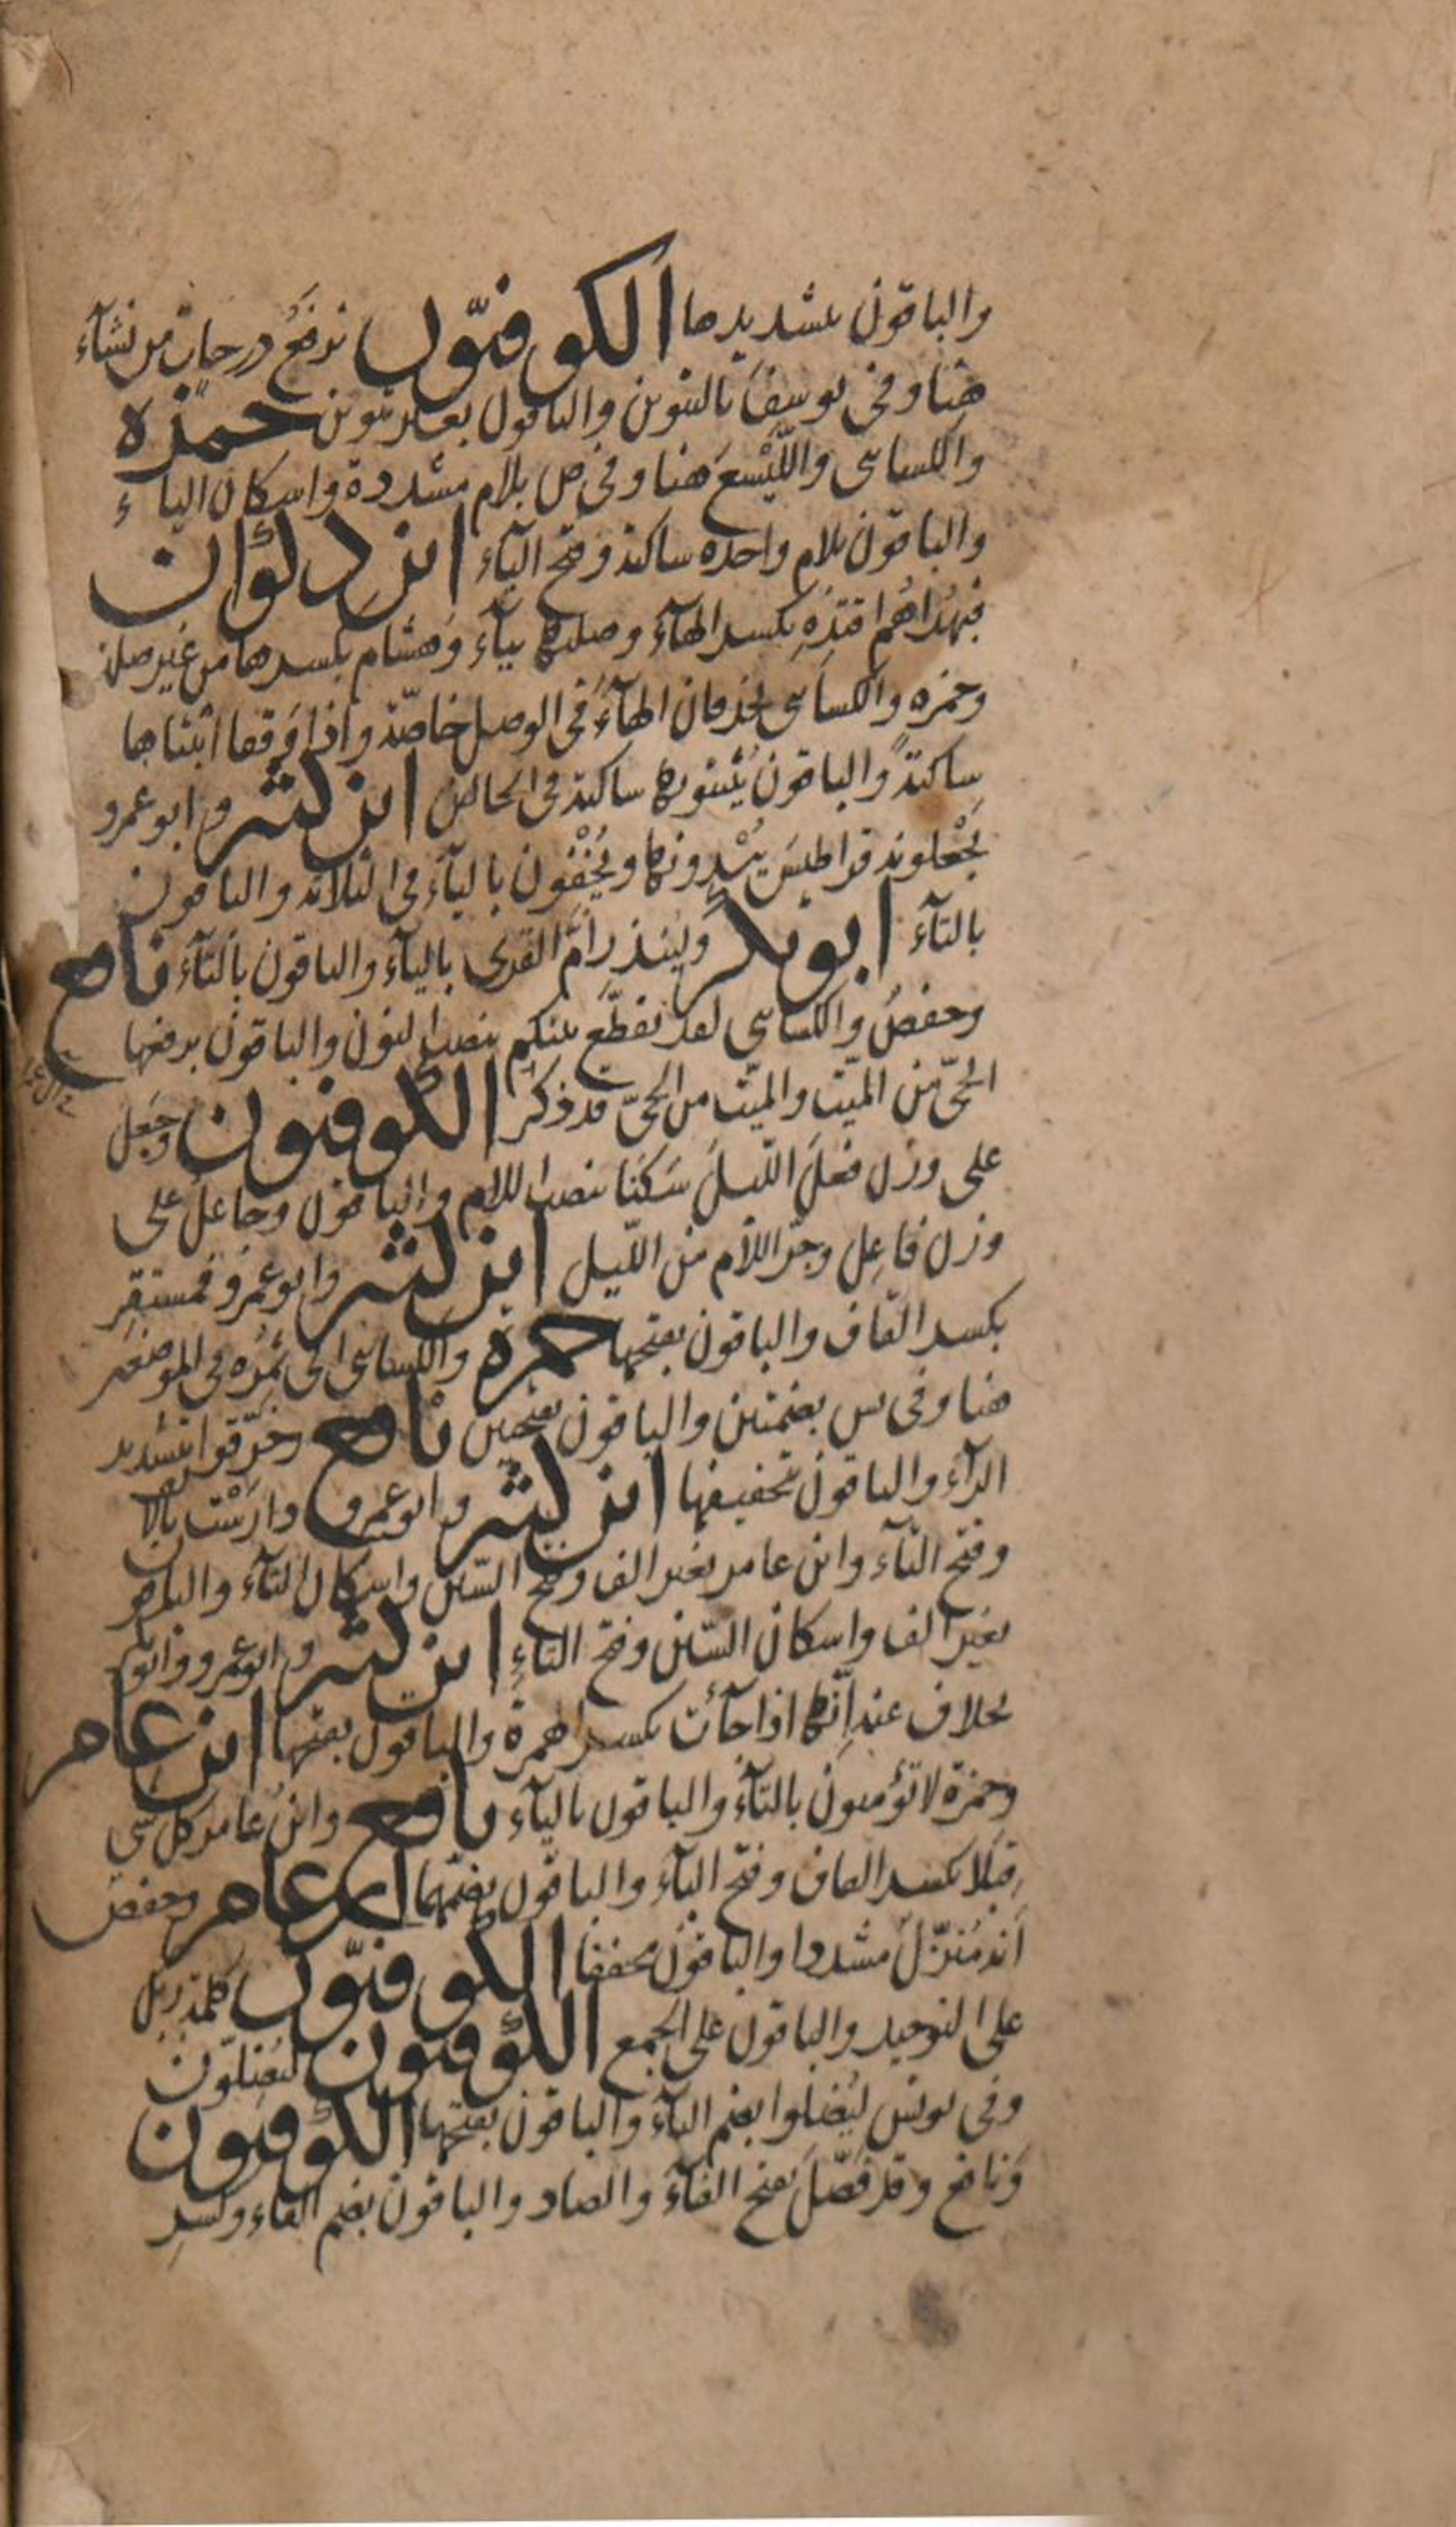 والباقون بتشديدها الكوفيّون نرفعُ درجاتٍ من نشآء
هنا وفى يوسفَ بالتنوين والباقون بغير تنوين حمزه
والكسائى واللَّيْسَعَ هنا وفى ص بلام مشددة واسكان الياء
والباقون بلام واحده ساكنة وفتح اليآء ابن ذكوان
فبهداهُم اقتدِهِ بكسر الهآء وصلتها بيآء وهشام بكسرها من غير صلة
وحمزه والكسائى يحذفان الهآءَ فى الوصل خاصّة واذا وقفا اثبتاها
ساكنةً والباقون يُثبتونها ساكنة فى الحالين ابن كثير وابو عمرو
يَجْعلونه قراطيسَ يُبْدونها ويُخْفُون باليآء فى الثلاثة والباقون
بالتآء ابو بكر ولينذر امَّ القرى باليآء والباقون بالتآء نافع
وحفصُ والكسائى لقد تقطّع بينكم بنصب النون والباقون برفعها
الحىّ من الميّت والميّت من الحىّ قد ذكر الكوفيون وجَعلَ
على وزن فعلَ اللّيلَ سَكَنا بنصب اللام والباقون وجاعلُ على
وزن فاعِل وجرّ اللام من اللّيل ابن كثير وابو عمرو فمستقِر
بكسر القاف والباقون بفتحها حمزه والكسائى الى ثُمُره فى الموضعين
هنا وفى يس بضمتين والباقون بفتحتين نافع وخرّقوا بتشديد
الرآء والباقون بتخفيفها ابن كثير وابو عمرو دارَسْت بالالف
وفتح التآء وابن عامر بغير الف وفتح السّين واسكان التآء والباقون
بغير الف واسكان السّين وفتح التاءِ ابن كثير وابو عمرو وابو بكر
بخلاف عنه اِنّها اذا جآءت بكسر الهمزة والباقون بفتحها ابن عامر
وحمزة لا تؤمنون بالتآء والباقون باليآء نافع وابن عامر كل شى
قِبَلا بكسر القاف وفتح البآء والباقون بضمّهما ابن عامر وحفص
اَنه مُنزّلٌ مشددا والباقون مخففا الكوفيّون كلمة ربك
على التوحيد والباقون على الجمع الكوفيون ليُضلّون
وفى يونس ليُضلوا بضم اليآء والباقون بفتحها الكوفيون
ونافع وقد فَصّلَ بفتح الفآء والصاد والباقون بضم الفاء وكسرِ